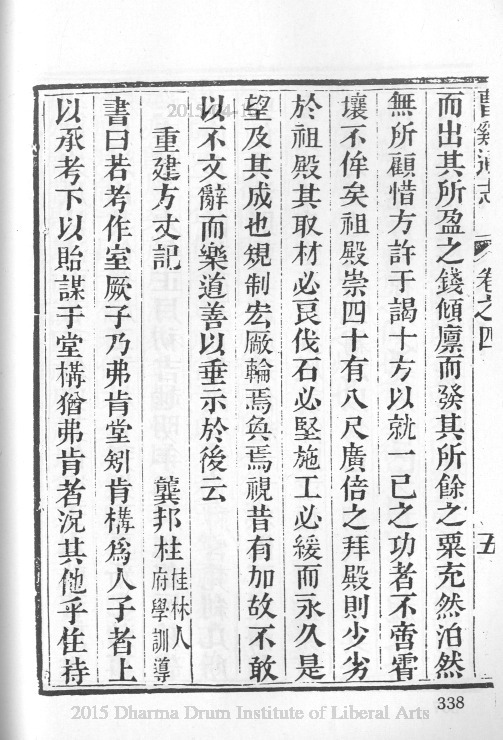 曹谿通志
卷之四
五
而出其所盈之錢傾廪而發其所餘之粟充然泊然
無所顧惜方許于謁十方以就一己之功者不啻霄
壤不侔矣祖殿崇四十有八尺廣倍之拜殿則少劣
於祖殿其取材必良伐石必堅施工必緩而永久是
望及其成也規制宏厰輪焉奐焉視昔有加故不敢
以不文辭而樂道善以垂示於後云
重建方丈記
龔邦柱
桂林人
府學訓導
書曰若考作室厥子乃弗肯堂矧肯構爲人子者上
以承考下以貽謀于堂構猶弗肯者況其他乎住持
338
2015 Dharma Drum Institute of Liberal Arts